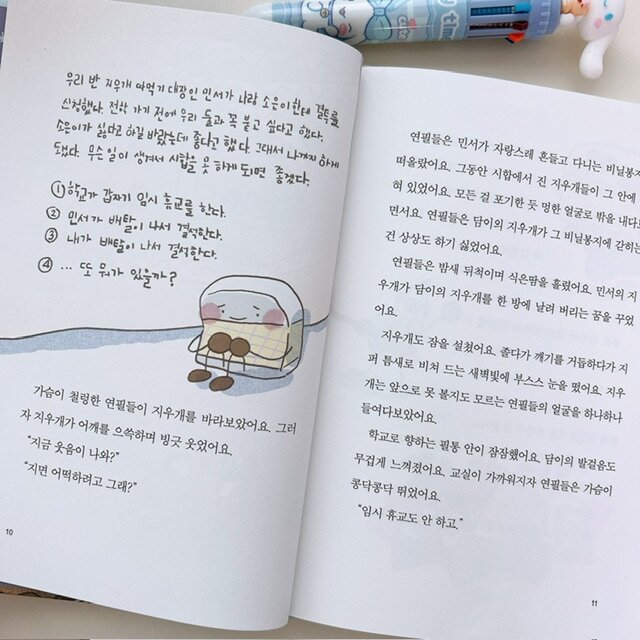 우리 반 지우개 따먹기 대장인 민서가 나랑 소은이한테 결투를
신청했다. 전학 가기 전에 우리 둘과 꼭 붙고 싶다고 했다.
소은이가 싫다고 하길 바랐는데 좋다고 했다. 그래서 나까지 하게
됐다. 무슨 일이 생겨서 시합을 못 하게 되면 좋겠다.
① 학교가 갑자기 임시 휴교를 한다.
② 민서가 배탈이 나서 결석한다.
③ 내가 배탈이 나서 결석한다.
④ ... 또 뭐가 있을까?
가슴이 철렁한 연필들이 지우개를 바라보았어요. 그러
자 지우개가 어깨를 으쓱하며 빙긋 웃었어요.
“지금 웃음이 나와?”
“지면 어떡하려고 그래?”
10
연필들은 민서가 자랑스레 흔들고 다니는 비닐봉지
떠올랐어요. 그동안 시합에서 진 지우개들이 그 안에
혀 있었어요. 모든 걸 포기한 듯 멍한 얼굴로 밖을 내다보
면서요. 연필들은 담이의 지우개가 그 비닐봉지에 갇히는
건 상상도 하기 싫었어요.
연필들은 밤새 뒤척이며 식은땀을 흘렸어요. 민서의 지
우개가 담이의 지우개를 한 방에 날려 버리는 꿈을 꾸었
어요.
지우개도 잠을 설쳤어요. 졸다가 깨기를 거듭하다가 지
퍼 틈새로 비쳐 드는 새벽빛에 부스스 눈을 떴어요. 지우
개는 앞으로 못 볼지도 모르는 연필들의 얼굴을 하나하나
들여다보았어요.
학교로 향하는 필통 안이 잠잠했어요. 담이의 발걸음도
무겁게 느껴졌어요. 교실이 가까워지자 연필들은 가슴이
콩닥콩닥 뛰었어요.
“임시 휴교도 안 하고.”
11